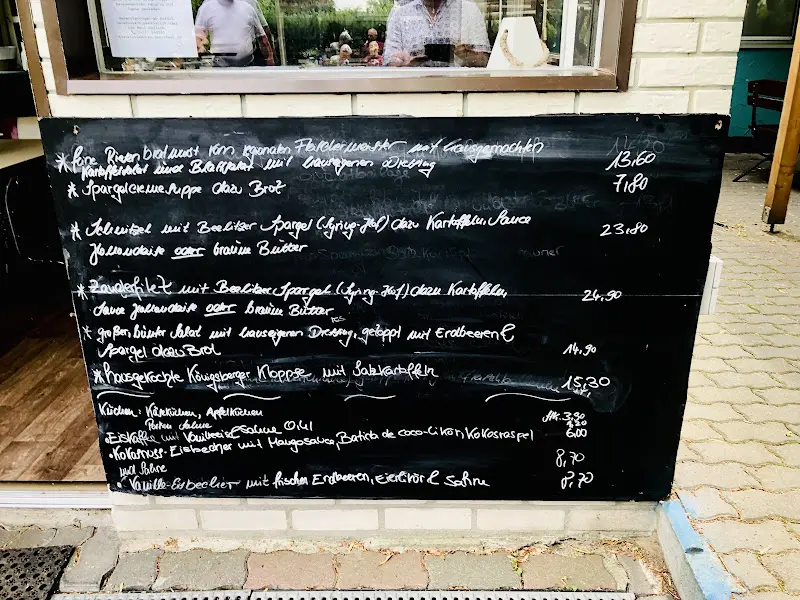 * Riesenbratwurst vom regionalen mit hausgemachten
Kartoffelsalat mit hauseigenen Dressing 13,60
* Spargelcremesuppe dazu Brot 7,80
* Schnitzel mit Beelitzer Spargel (Syring-Hof) dazu Kartoffeln, Sauce 23,80
Hollandaise oder braune Butter
* Zanderfilet mit Beelitzer Spargel (Syring-Hof) dazu Kartoffeln, 24,90
Sauce Hollandaise oder braune Butter
* großer bunter Salat mit hauseigenen Dressing, getoppt mit Erdbeeren &
Spargel dazu Brot 14,90
* hausgekochte Königsberger Klopse mit Salzkartoffeln 15,30
Kuchen: Käsekuchen, Apfelkuchen 3,90
Portion Sahne
• Eiskaffee mit Vanilleeis & Sahne 0,4l 6,00
• Kokosnuss-Eisbecher mit Mangosauce, Batida de coco-Likör, Kokosraspel
und Sahne 8,70
• Vanille-Eisbecher mit frischen Erdbeeren, Eierlikör & Sahne 8,70